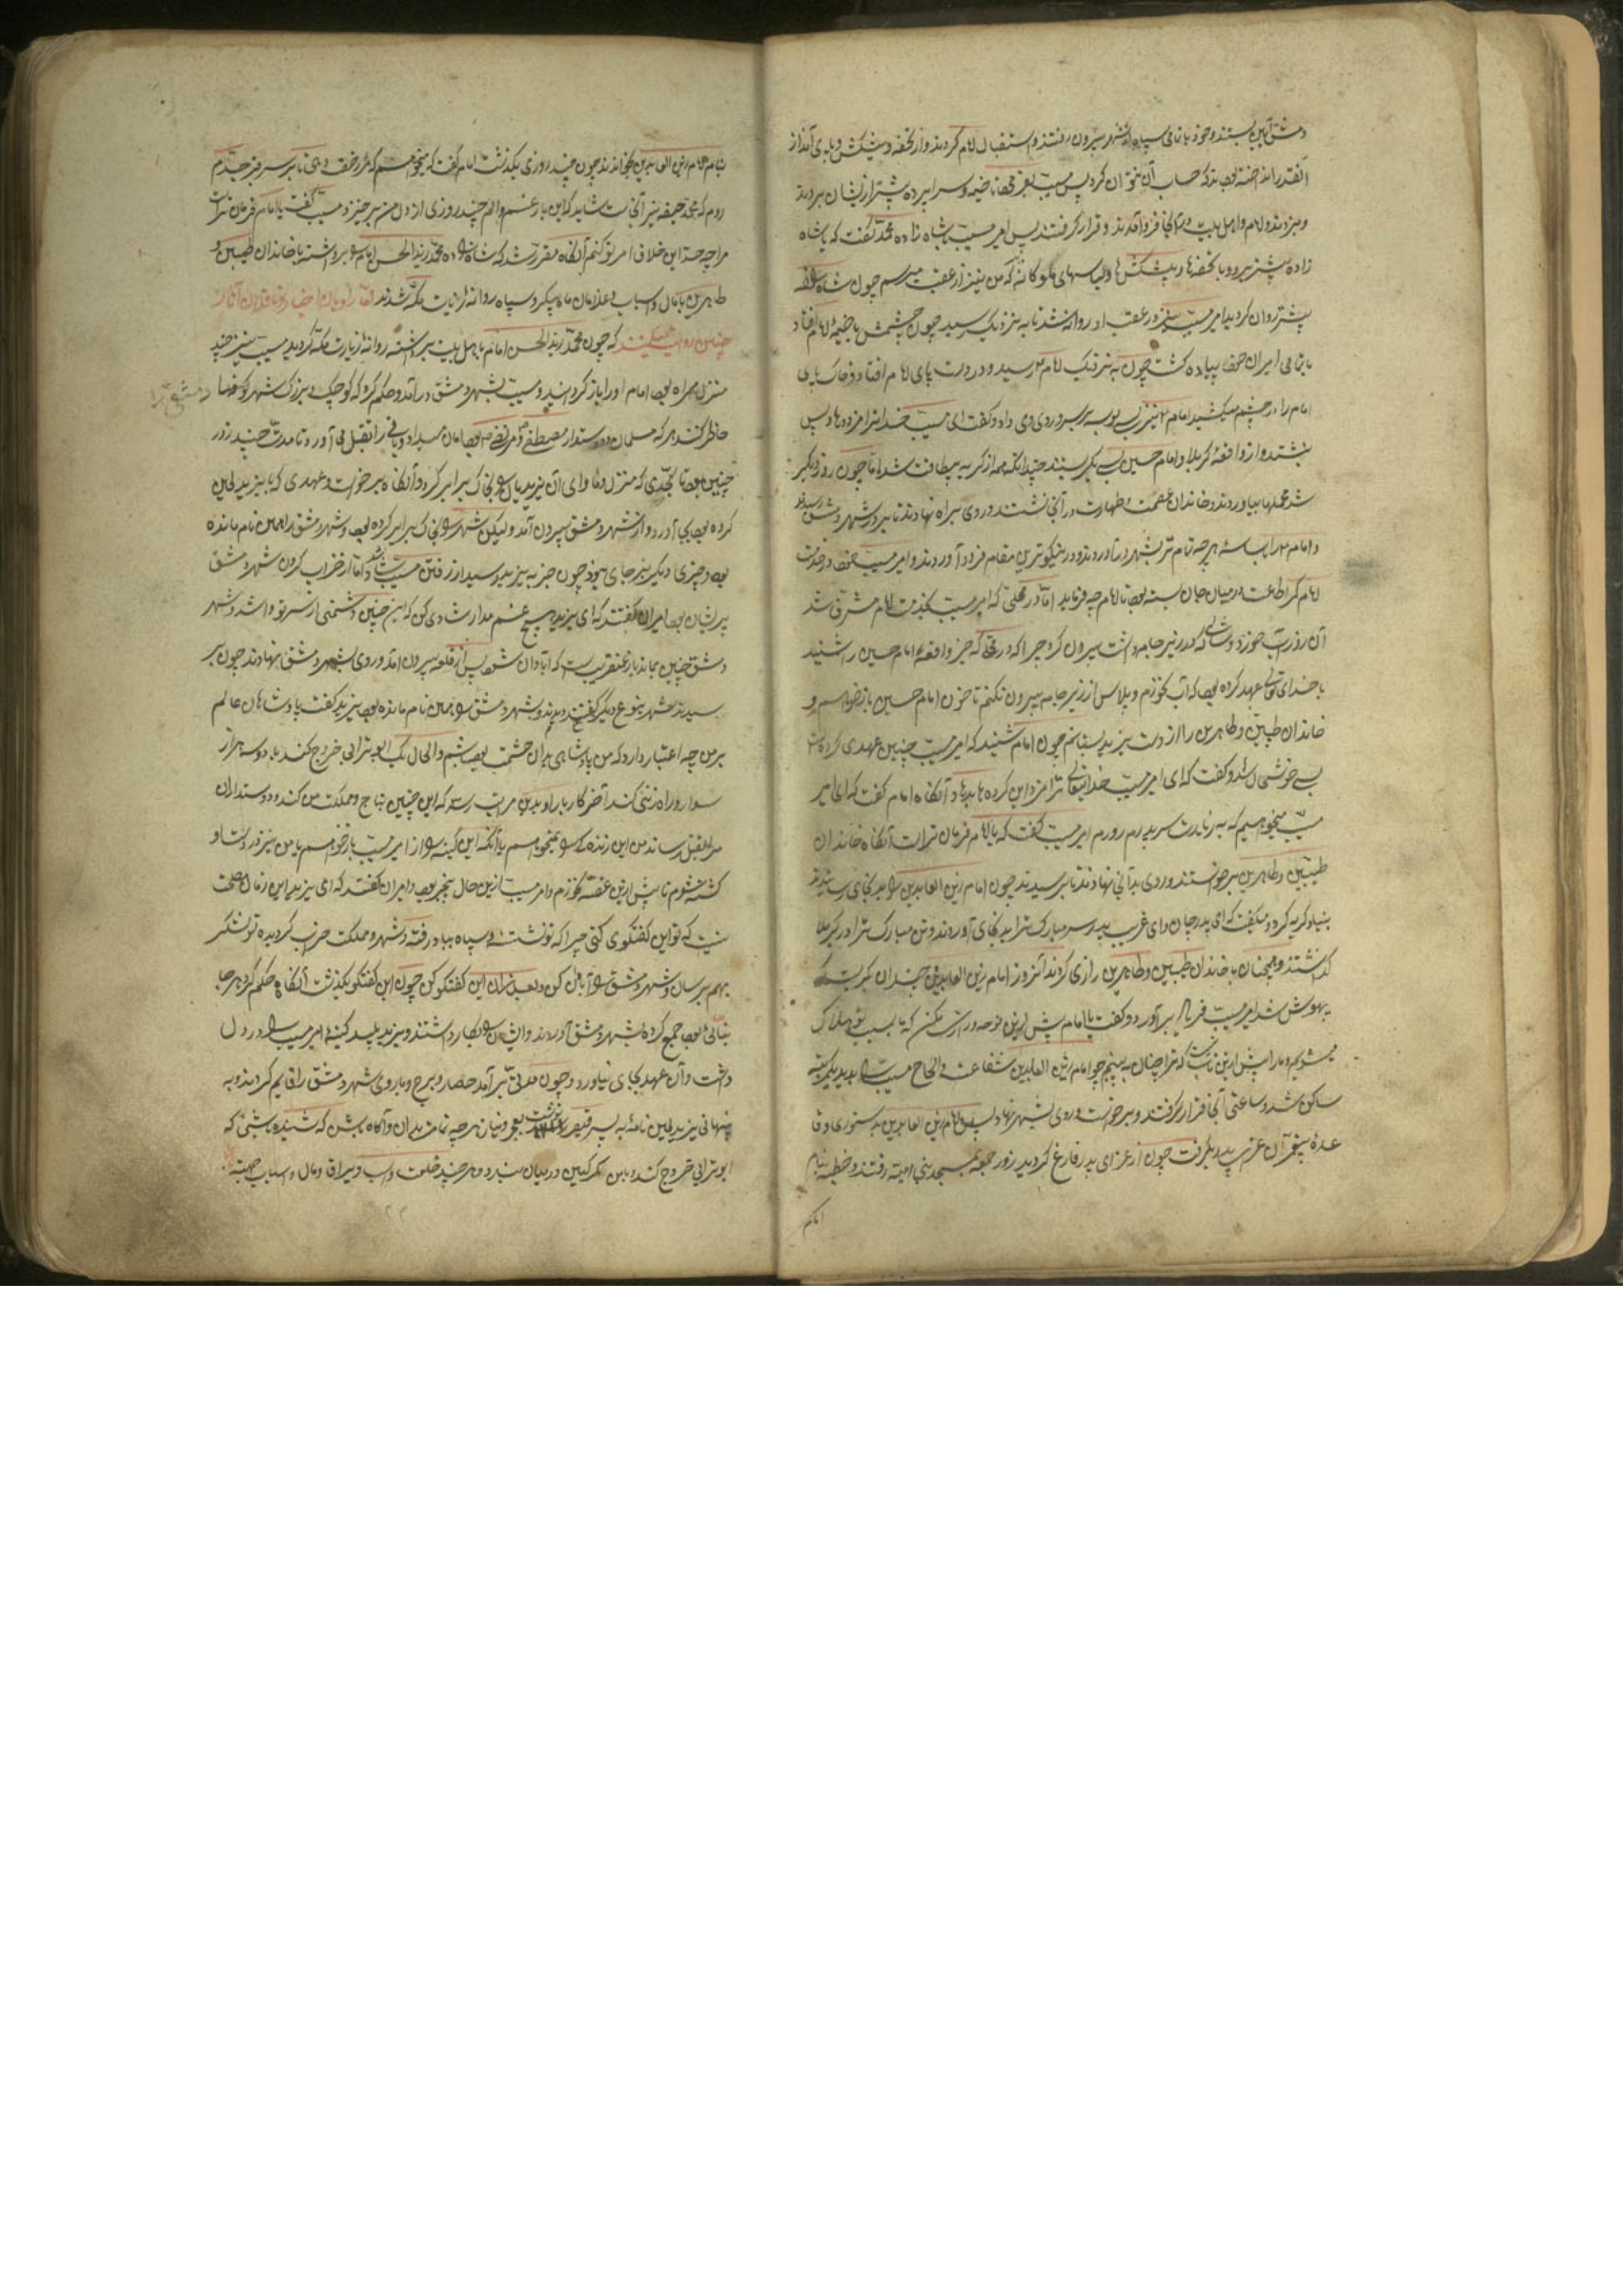 دمشق آیین بستند و خود با تمامی سپاه از شهر بیرون رفتند و استقبال امام کردند و از تحفه و پیشکش و پای انداز
آنقدر انداخته بود که حساب آن نتوان کرد پس مسیب بفرمود تا خیمه و سراپرده پیشتر از ایشان بردند
و بزدند و امام و اهل بیت در آنجا فرود آمدند و قرار گرفتند پس امیر مسیب شاه زاده محمد گفت که یا شاه
زاده پیشتر برو با تحفه‌ها و پیشکشها و لباسهای ملوکانه که من نیز از عقب میرسم چون شاه زاده
پیشتر روان گردید امیر مسیب نیز در عقب او روانه شد تا به نزدیک رسید چون چشمش با خیمهٔ امام افتاد
با تمامی امیران خود پیاده گشت چون به نزدیک امام رسید و در دست و پای امام افتاد و خاک پای
امام را در چشم میکشید امام نیز بسی بوسه بر سر و روی وی داد و گفت ای مسیب خدا ترا مزد دهاد پس
بنشستند و از واقعهٔ کربلا و امام حسین بسی بگریستند چندانکه همه از گریه بیطاقت شدند اما چون روز دیگر
شد محملها بیاوردند و خاندان عصمت و طهارت در آنجا نشستند و روی براه نهادند تا بر در شهر دمشق رسیدند
و امام را به هر چه تمام تر بشهر در آوردند و در نیکوترین مقام فرود آوردند و امیر مسیب خود در خدمت
امام کمر اطاعت در میان جان بسته بود تا امام چه فرماید اما در محلی که امیر مسیب بخدمت امام مشرف شد
آن روز آب خورد و پلاسی که در زیر جامه داشت بیرون کرد چرا که در وقتی که خبر واقعهٔ امام حسین را شنید
با خدای تعالی عهد کرده بود که آب نخورم و پلاس از زیر جامه بیرون نکنم تا خون امام حسین باز نخواهم و
خاندان طیبین و طاهرین را از دست یزید بستانم چون امام شنید که امیر مسیب چنین عهدی کرده
بسی خوشحال شد و گفت که ای امیر مسیب خدایتعالی ترا مزد این کرده ها بدهاد آنگاه امام گفت که ای امیر
مسیب میخواهیم که به زیارت سر پدرم روم امیر مسیب گفت که یا امام فرمان تراست آنگاه خاندان
طیبین و طاهرین برخواستند و روی بدانجا نهادند تا برسیدند چون امام زین العابدین را بدانجای رسانیدند
بنیاد گریه کرد و میگفت که ای پدر جان وای غریب پدر سر مبارک ترا بدینجای آوردند و تن مبارک ترا در کربلا
گذاشتند و همچنان با خاندان طیبین و طاهرین زاری کردند آنروز امام زین العابدین چندان گریست که
بیهوش شد امیر مسیب فریاد برآورد و گفت یا امام پیش ازین نوحه و زاری مکن که ما بسبب تو هلاک
میشویم و ما را پیش ازین تاب نیست که ترا چنان به بینیم چو امام زین العابدین شفاعت و الحاح مسیب را بدید
ساکن شد و ساعتی آنجا قرار گرفتند و برخواست و روی بشهر نهاد پس امام زین العابدین بدستوری و قا
عدهٔ پیغمبران عزای پدر بگرفت چون از عزای پدر فارغ گردید روز جمعه بمسجد بنی امیه رفتند و خطبه بنام
امام
بنام امام زین العابدین بخواندند چون چند روزی بگذشت امام گفت که میخواهم که مرا رخصت دهی تا بر سر قبر جدم
روم که محمد حنیفه نیز آنجاست شاید که این بار غم و الم چند روزی از دل من برخیزد مسیب گفت یا امام فرمان تراست
مرا چه حد این خلاف امر تو کنم آنگاه مقرر شد که شاه زاده محمد زید الحسن امام را برداشته با خاندان طیبین و
طاهرین با مال و اسباب و غلامان ماه پیکر و سپاه روانهٔ زیارت مکه شدند اما راویان اخبار و ناقلان آثار
چنین روایت میکنند که چون محمد زید الحسن امام با اهل بیت برداشته روانهٔ زیارت مکه گردید مسیب نیز چند
منزل همراه بود امام او را باز گردانید و مسیب بشهر دمشق درآمد و حکم کرد که کوچک و بزرگ شهر
دمشق را
حاضر کنند هر که مسلمان و دوستدار مصطفی و مرتضی بود امان میداد و باقی را بقتل می آورد تا مدت چند روز
چنین بود تا بحدی که منزل و ماوای آن یزید را بخاک برابر کرد و آنگاه برخواست و عهدی که با یزید لعین
کرده بود بجای آورد و از شهر دمشق بیرون آمد و لیکن شهر را بخاک برابر کرده بود و شهر دمشق را همین نام مانده
بود و چیزی دیگر بر جای نبود چون خبر به یزید رسید از رفتن مسیب شاد اما از خراب کردن شهر دمشق
پریشان بود امیران گفتند که ای یزید هیچ غم مدار شادی کن که این چنین دشمنی از سر تو وا شد و شهر
دمشق چنین نماند باز عنقریب است که آبادان شود پس از قلعه بیرون آمد و روی بشهر دمشق نهادند چون بر
سیدند شهر بنوع دیگر دیدند و شهر دمشق را همین نام مانده بود یزید گفت پادشاهان عالم
بر من چه اعتبار دارد که من پادشاهی بدان حشمت بوده باشم والحال یک ابوترابی خروج کند با دو سه هزار
سوار و راه زنی کند آخر کار با او بدین مرتبه رسد که این چنین تاج و مملکت من کند و دوستداران
مرا بقتل رساند من این زنده گی را نمیخواهم یا آنکه این کینه را از امیر مسیب باز خواهم یا من نیز در دست او
کشته شوم تا پیش ازین غصه نخورم و امیر مسیب ازین حال بیخبر بود امیران گفتند که ای یزید این زمان مصلحت
نیست که تو این گفتگوی کنی چرا که تو نشسته و سپاه بباد رفته و شهر و مملکت خراب گردیده تو لشکر
بهم برسان و شهر دمشق را آبادان کن و بعد از آن این گفتگو کن چون این گفتگو بگذشت آنگاه حکم کرد هر جا
بنائی بود جمع کرده بشهر دمشق آوردند و ایشان را بکار داشتند و یزید پلید کینهٔ امیر مسیب را در دل
داشت و آن عهد بجای نیاورد و چون مدتی برآمد حصار و برج و باروی شهر دمشق را قایم کردند و به
پنهانی یزید لعین نامهٔ به پسر قیصر نوشت بعجز و نیاز هر چه تمامتر بدان و آگاه باش که شنیده باشی که
ابوترابی خروج کند و با من مکر و کین در میان ببرد و هر چند خلعت و اسب و یراق و مال و اسباب جهت
۲۲